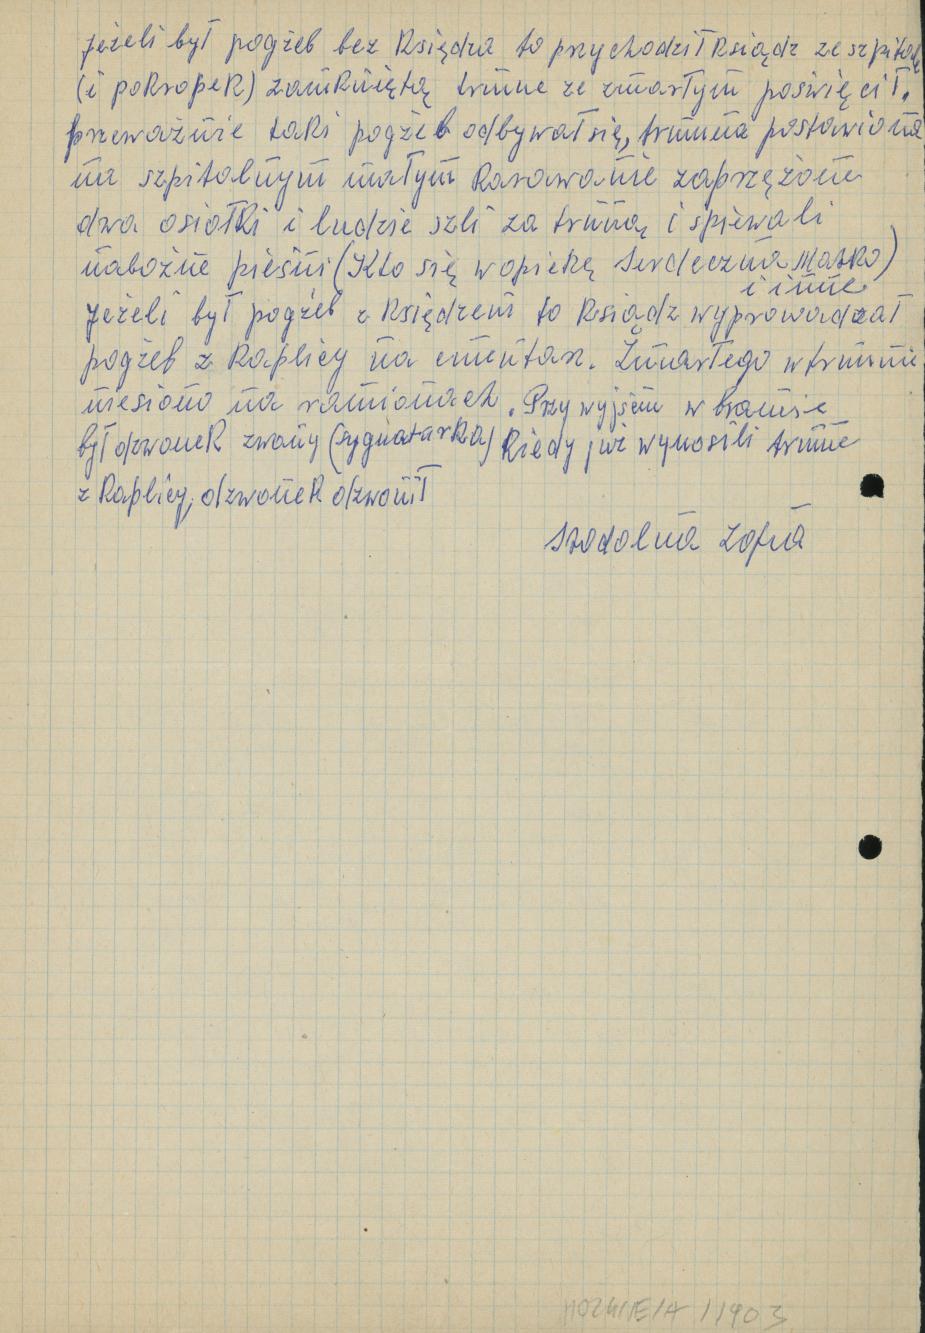 jeżeli był pogżeb bez księdza to przychodził ksiądz ze szpitala
(i pokropek) zamkniętą trunne ze zmarłym poswięcił.
przeważnie taki pogżeb odbywał się, trunna postawiona
na szpitalnym małym karawanie zaprzężone
dwa osiołki i ludzie szli za trunną i spiewali
nabożne pieśni (Kto się w opiekę Serdeczna Matko)
i inne
jeżeli był pogżeb z księdzem to ksiądz wyprowadzał
pogżeb z kaplicy na cmentaz. Zmarłego w trunnie
niesiono na ramionach. Przy wyjściu w bramie
był dzwonek zwany (sygnaturka) kiedy już wynosili trunne
z kaplicy, dzwonek dzwonił
Zofia